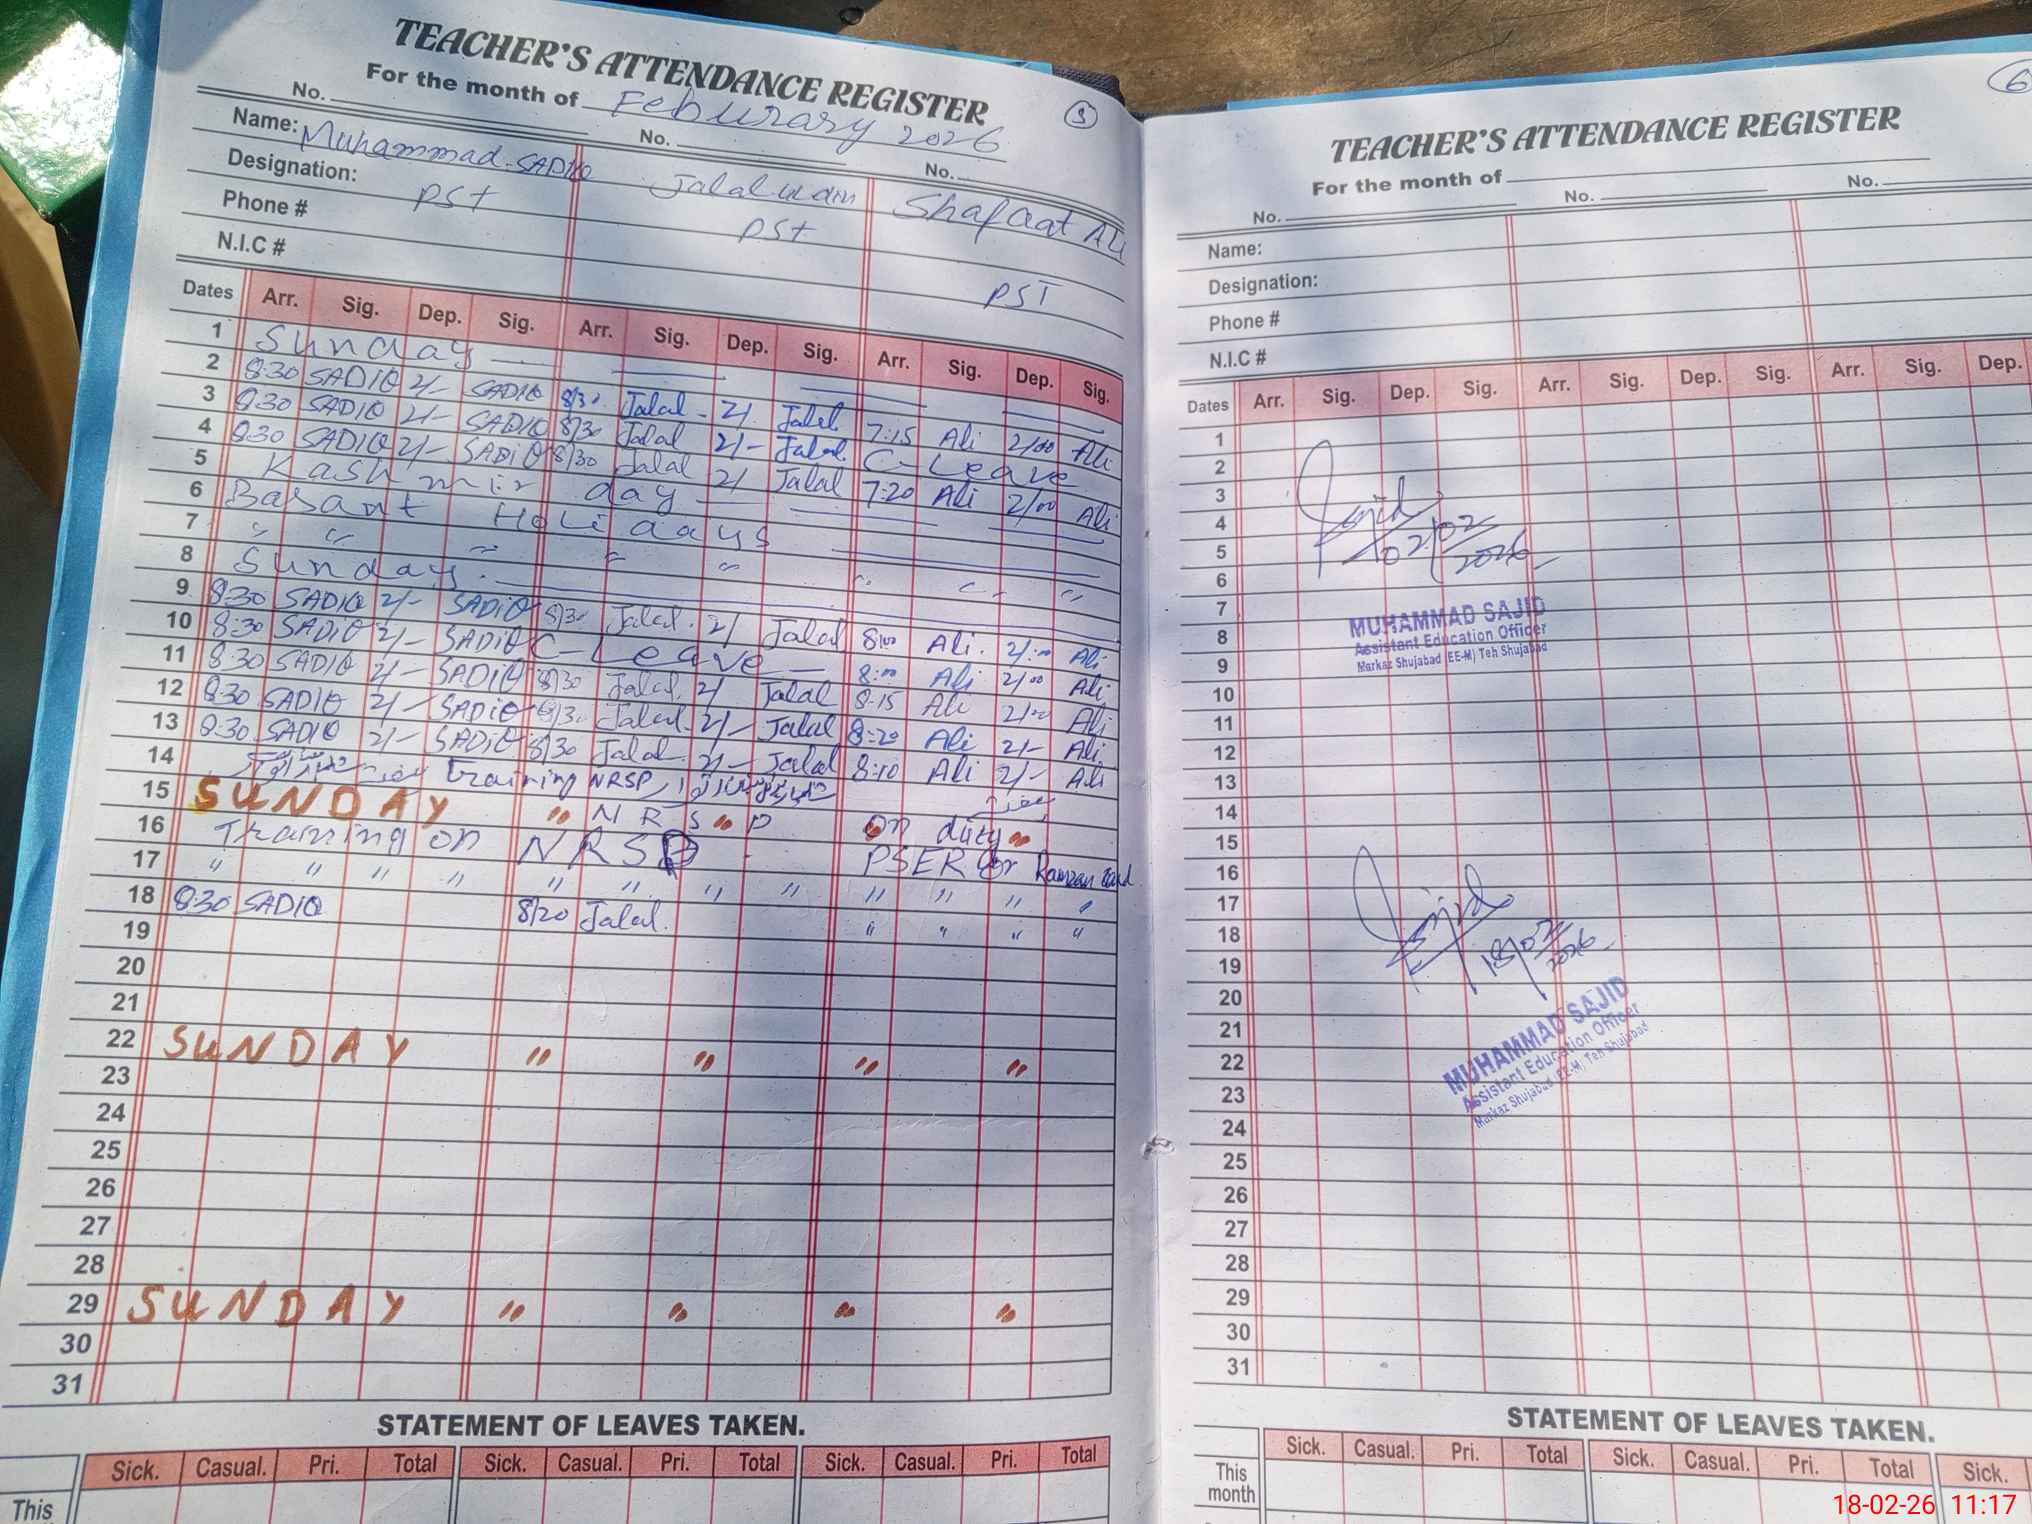 TEACHER'S ATTENDANCE REGISTER
For the month of Feburary 2026
5
No. No. No.
Name: Muhammad SADIQ Jalal Shafaat Ali
Designation: PST PST PST
Phone #
N.I.C #
Dates Arr. Sig. Dep. Sig. Arr. Sig. Dep. Sig. Arr. Sig. Dep. Sig.
1 Sunday
2 8:30 SADIQ 2/- SADIQ 8/30 Jalal 2/ Jalal 7:15 Ali 2/00 Ali
3 8:30 SADIQ 2/- SADIQ 8/30 Jalal 2/- Jalal C-Leave
4 8:30 SADIQ 2/- SADIQ 8/30 Jalal 2/ Jalal 7:20 Ali 2/00 Ali
5 Kashmir day
6 Basant Holidays
7 " " " " " " " "
8 Sunday
9 8:30 SADIQ 2/- SADIQ 8/30 Jalal 2/ Jalal 8:00 Ali 2/:00 Ali
10 8:30 SADIQ 2/- SADIQ C-Leave 8:00 Ali 2/00 Ali
11 8:30 SADIQ 2/- SADIQ 8/30 Jalal 2/ Jalal 8:15 Ali 2/00 Ali
12 8:30 SADIQ 2/- SADIQ 8/30 Jalal 2/- Jalal 8:20 Ali 2/- Ali
13 8:30 SADIQ 2/- SADIQ 8/30 Jalal 2/- Jalal 8:10 Ali 2/- Ali
14 Training NRSP
15 SUNDAY " NRS " P On duty "
16 Training on NRSP PSER for Ramzan Card
17 " " " " " " " " " " " "
18 8:30 SADIQ 8/20 Jalal " " " "
19
20
21
22 SUNDAY " " " "
23
24
25
26
27
28
29 SUNDAY " " " "
30
31
STATEMENT OF LEAVES TAKEN.
Sick. Casual. Pri. Total Sick. Casual. Pri. Total Sick. Casual. Pri. Total
This
TEACHER'S ATTENDANCE REGISTER
6
For the month of
No. No. No.
Name:
Designation:
Phone #
N.I.C #
Dates Arr. Sig. Dep. Sig. Arr. Sig. Dep. Sig. Arr. Sig. Dep.
1
2
3
4 Sajid
5 02/02/2026
6
7
8 MUHAMMAD SAJID
Assistant Education Officer
9 Markaz Shujabad (EE-M) Teh Shujabad
10
11
12
13
14
15
16
17
18 Sajid
19 18/02/2026
20
21
22 MUHAMMAD SAJID
23 Assistant Education Officer
Markaz Shujabad (EE-M) Teh Shujabad
24
25
26
27
28
29
30
31
STATEMENT OF LEAVES TAKEN.
Sick. Casual. Pri. Total Sick. Casual. Pri. Total Sick.
This month
18-02-26 11:17